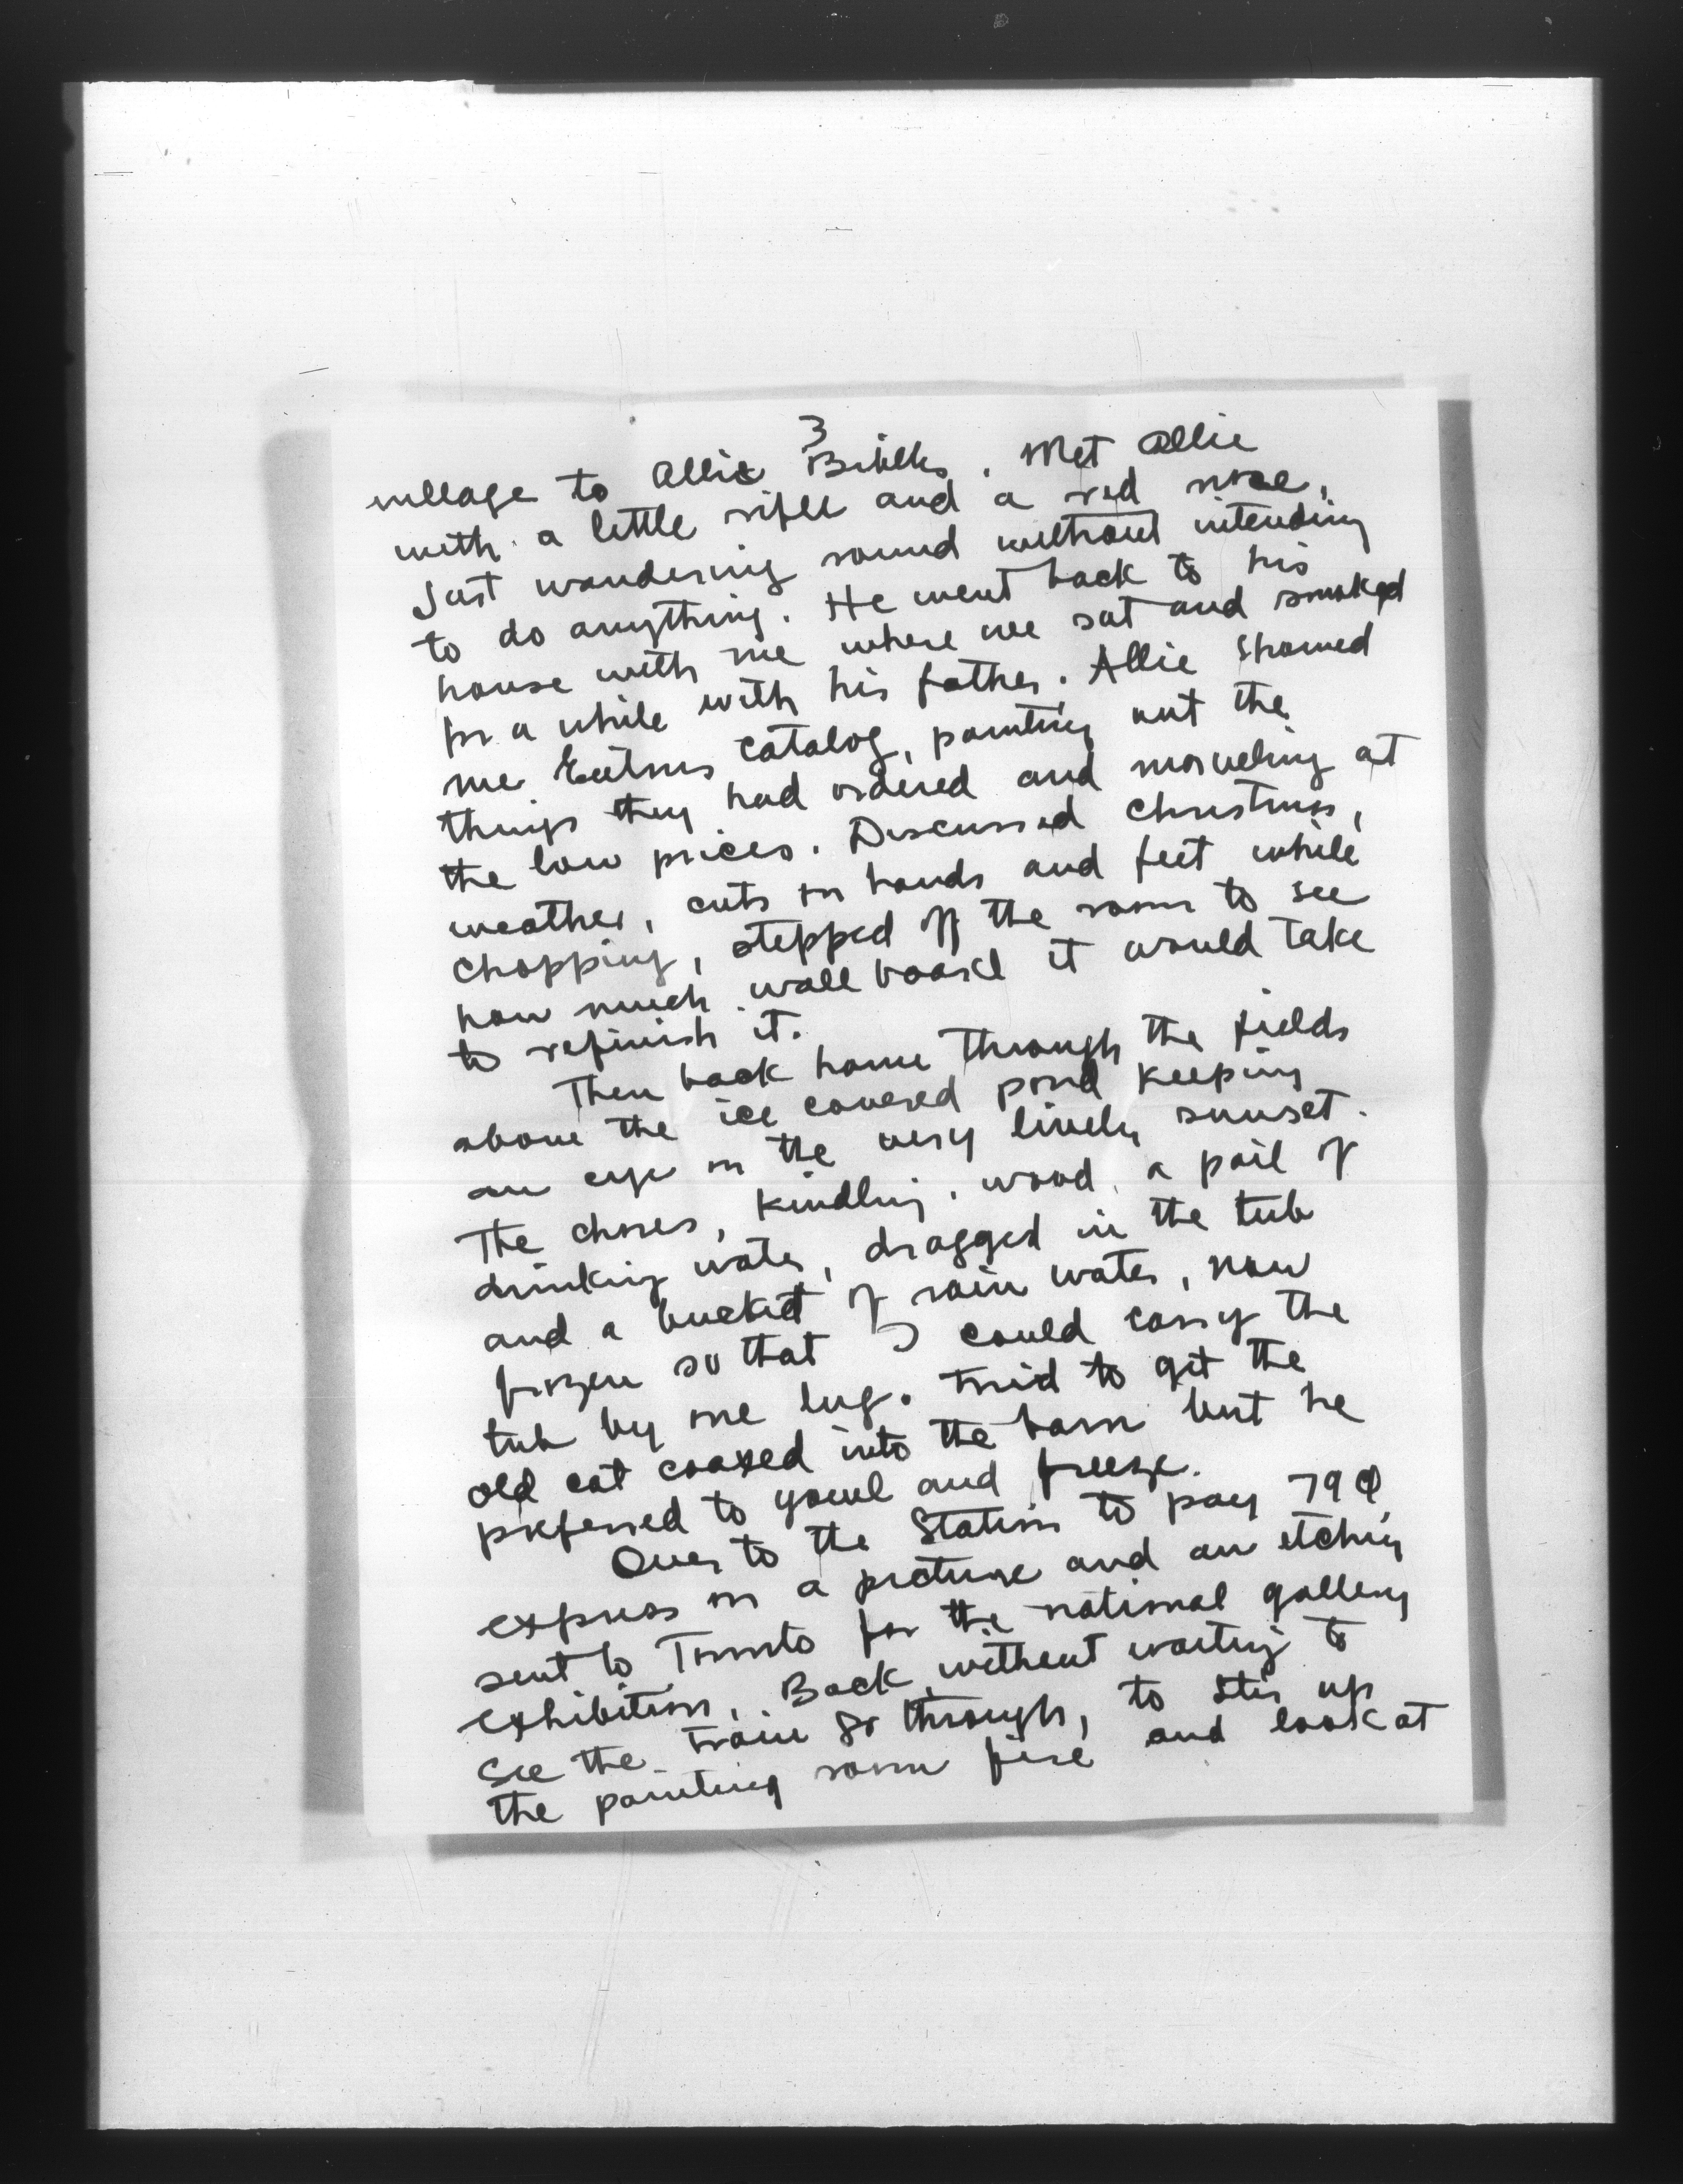 3
village to Allie . Met Allie
with a little rifle and a red nose,
Just wandering round without intending
to do anything. He went back to his
house with me where we sat and smoked
for a while with his father. Allie showed
me Eatons catalog, pointing out the
things they had ordered and marveling at
the low prices. Discussed Christmas,
weather, cuts on hands and feet while
chopping, stepped off the room to see
how much wall board it would take
to refinish it.
Then back home through the fields
above the ice covered pond keeping
an eye on the very lively sunset.
The chores, kindling, wood, a pail of
drinking water, dragged in the tub
and a bucket of rain water, now
frozen so that I could carry the
tub by one lug. Tried to get the
old cat coaxed into the barn but he
preferred to yowl and freeze.
Over to the Station to pay 79¢
express on a picture and an etching
sent to Toronto for the national gallery
exhibition. Back, without waiting to
see the train go through, to stir up
the painting room fire and look at